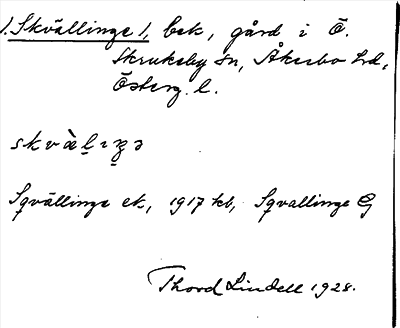 1. Skvällinge 1, bek, gård i Ö.
Skrukeby sn, Åkerbo hd,
Österg. l.
skvàlıŋə
Sqvällinge ek, 1917 kb, Sqvallinge G
Thord Lindell 1928.